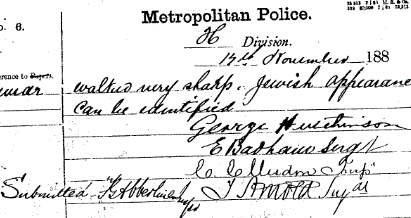 Metropolitan Police.
o. 6.
H Division.
November 188
erence to Papers.
walked very sharp. Jewish appearance
can be identified
George Hutchinson
E Badham Sergt
Submitted F G Abberline Insp
T Arnold Supdt